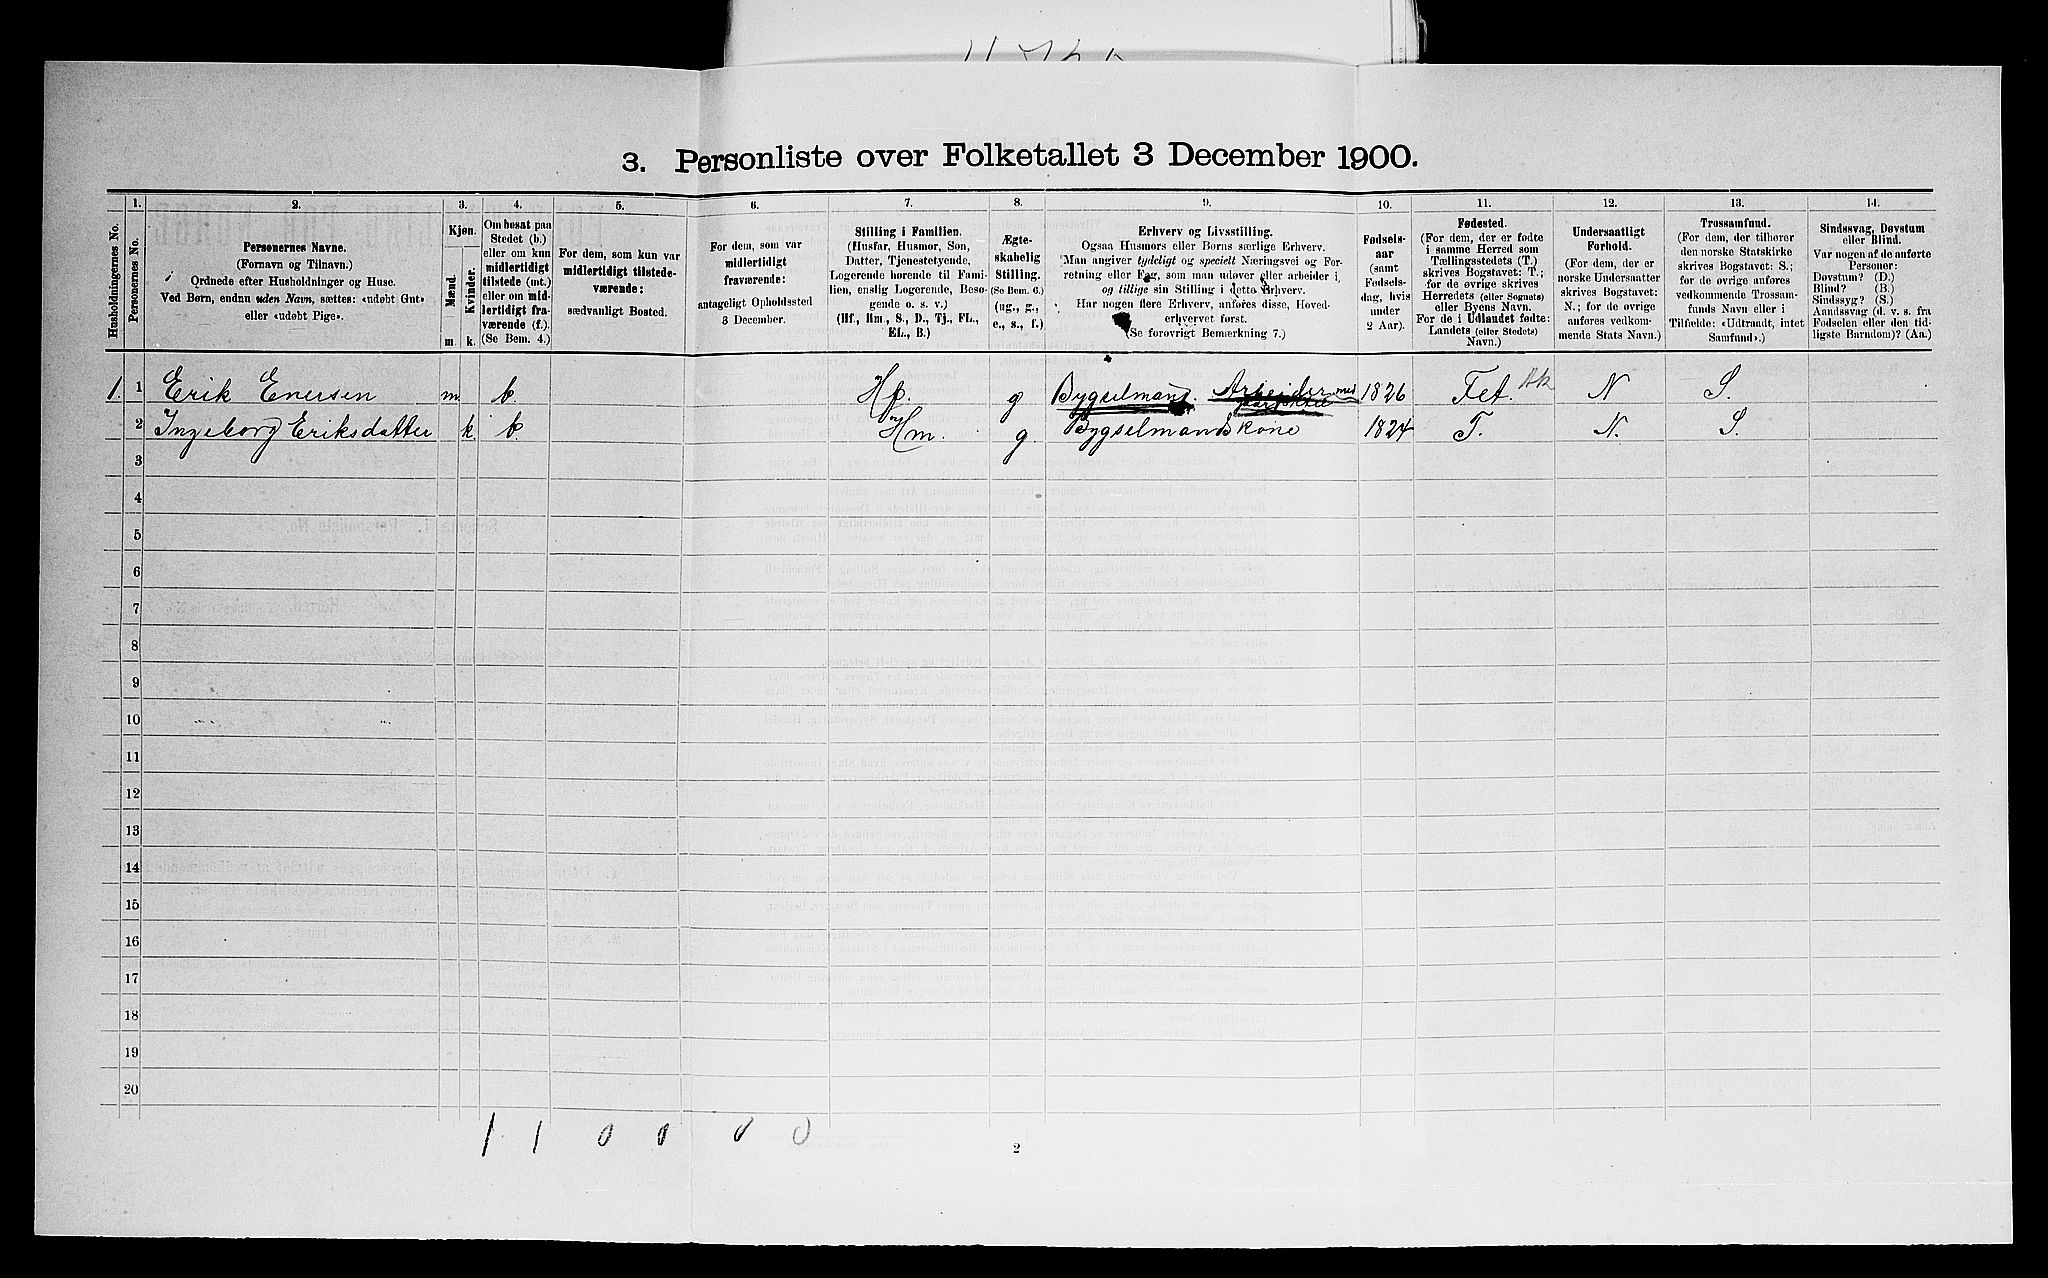 3. Personliste over Folketallet 3 December 1900.
Husholdningernes No.
1.
Personernes No.
2.
Personernes Navne.
(Fornavn og Tilnavn.)
Ordnede efter Husholdninger og Huse.
Ved Børn, endnu uden Navn, sættes: «udøbt Gut»
eller «udøbt Pige».
3.
Kjøn.
Mænd.
Kvinder.
m.
k.
4.
Om bosat paa
Stedet (b.)
eller om kun
midlertidigt
tilstede (mt.)
eller om mid-
lertidigt fra-
værende (f.).
(Se Bem. 4.)
5.
For dem, som kun var
midlertidigt tilstede-
værende:
sædvanligt Bosted.
6.
For dem, som var
midlertidigt
fraværende:
antageligt Opholdssted
3 December.
7.
Stilling i Familien.
(Husfar, Husmor, Søn,
Datter, Tjenestetyende,
Logerende hørende til Fami-
lien, enslig Logerende, Besø-
gende o. s. v.)
(Hf., Hm., S., D., Tj., FL.,
EL., B.)
8.
Ægte-
skabelig
Stilling.
(Se Bem. 6.)
(ug., g.,
e., s., f.)
9.
Erhverv og Livsstilling.
Ogsaa Husmors eller Børns særlige Erhverv.
Man angiver tydeligt og specielt Næringsvei og For-
retning eller Fag, som man udøver eller arbeider i,
og tillige sin Stilling i dette Erhverv.
Har nogen flere Erhverv, anføres disse, Hoved-
erhvervet først.
(Se forøvrigt Bemærkning 7.)
10.
Fødsels-
aar
(samt
Fødsels-
dag, hvis
under
2 Aar).
11.
Fødested.
(For dem, der er fødte
i samme Herred som
Tællingsstedets (T.)
skrives Bogstavet: T.;
for de øvrige skrives
Herredets (eller Sognets)
eller Byens Navn.
For de i Udlandet fødte:
Landets (eller Stedets)
Navn.)
12.
Undersaatligt
Forhold.
(For dem, der er
norske Undersaatter
skrives Bogstavet:
N.; for de øvrige
anføres vedkom-
mende Stats Navn.)
13.
Trossamfund.
(For dem, der tilhører
den norske Statskirke
skrives Bogstavet: S.;
for de øvrige anføres
vedkommende Trossam-
funds Navn eller i
Tilfælde: «Udtraadt, intet
Samfund».)
14.
Sindssvag, Døvstum
eller Blind.
Var nogen af de anførte
Personer:
Døvstum? (D.)
Blind? (B.)
Sindssyg? (S.)
Aandssvag (d. v. s. fra
Fødselen eller den tid-
ligste Barndom)? (Aa.)
1. 1 Erik Enersen m. b. Hf. g Bygselmand. Arbeider med 1826 Fet. Ak N S.
2 Ingeborg Eriksdatter k. b Hm. g. Bygselmandskone 1824 T. N. S.
3
4
5
6
7
8
9
10
11
12
13
14
15
16
17
18
19
20
1 1 0 0 0 0
2